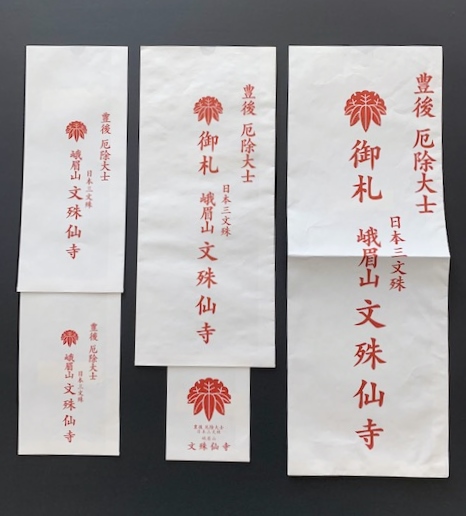 豊後 厄除大士
日本三文殊
御札 峨眉山 文殊仙寺
豊後 厄除大士
日本三文殊
御札 峨眉山 文殊仙寺
豊後 厄除大士
日本三文殊
峨眉山 文殊仙寺
豊後 厄除大士
日本三文殊
文殊仙寺
豊後 厄除大士
日本三文殊
峨眉山 文殊仙寺